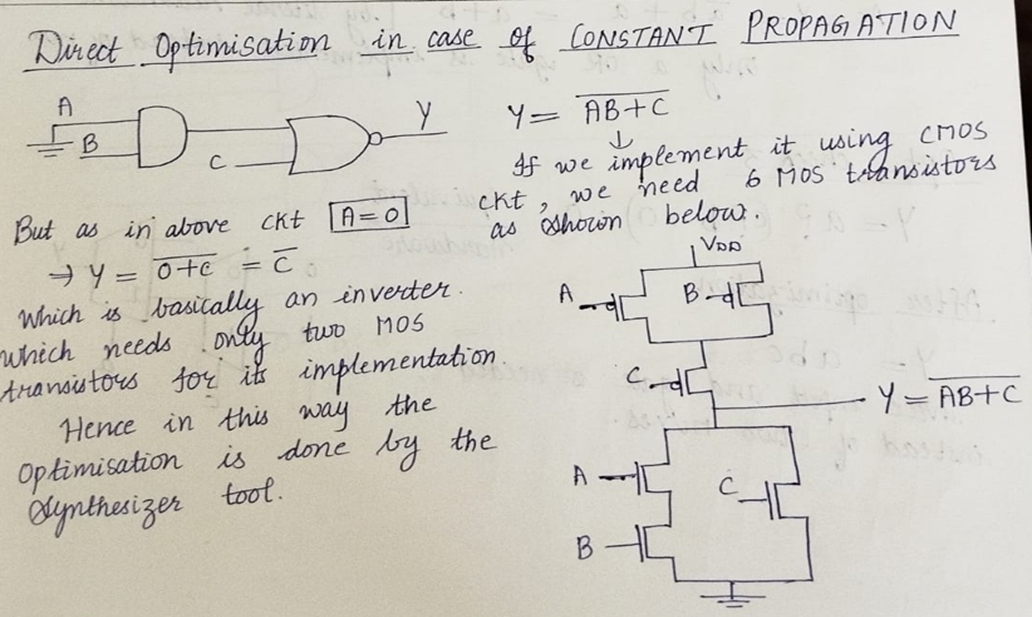 Direct Optimisation in case of CONSTANT PROPAGATION
A
B
C
Y
Y = \overline{AB+C}
↓
If we implement it using CMOS
ckt, we need 6 MOS transistors
as shown below.
But as in above ckt A=0
→ Y = \overline{0+C} = \overline{C}
Which is basically an inverter.
which needs only two MOS
transistors for its implementation.
Hence in this way the
optimisation is done by the
synthesizer tool.
VDD
A
B
C
Y = \overline{AB+C}
A
C
B